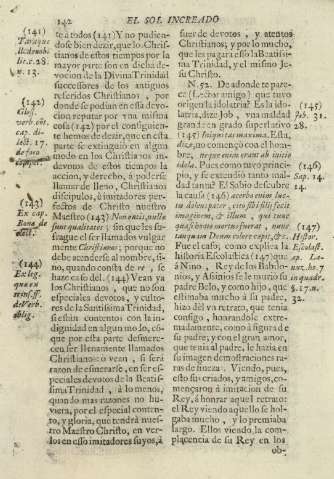 142 EL SOL INCREADO
(141)
n. 13.
(142)
(143)
(144)
te à todos (141) Y no pudiendose
bien dezir, que lo. Christianos
de estos tiempos por la
mayor parte son en dicha devocion
de la Divina Trinidad
successores de los antiguos
referidos Christianos, por
donde se podian en esta devocion
reputar por vna misma
cosa (142) por el consiguiente
hemos de dezir, que en esta
parte se extinguiò en algun
modo en los Christianos indevotos
de estos tiempos la
accion, y derecho, à poderse
llamar de lleno, Christianos
discipulos, è imitadores perfectos
de Christo nuestro
Maestro (143) Non entis, nullæ
sunt qualitates; sin que les sufrague
el ser llamados vulgarmente
Christianos; porque no
debe atenderse al nombre, sino,
quando consta de re, se
haze caso del. (144) Vean ya
los Christianos, que no son
especiales devotos, y cultores
de la Santissima Trinidad,
si estàn contentos con la indignidad
en algun modo, esque
por esta parte desmerecen
ser llenamente llamados
Christianos: ò vean, si serà
razon de esmerarse, en ser especiales
devotos de la Beatissima
Trinidad, à lo menos,
quando mas razones no huviera,
por el especial contento,
y gloria, que tendrà nuestro
Maestro Christo, en verlos
en esso imitadores suyos, à
suer de devotos, y atentos
Christianos; y por lo mucho,
que les pagarà esso la Beatissima
Trinidad, y el mismo Jesu
Christo.
N. 52. De adonde te parece
(Lector amigo) que tuvo
origen la idolatria? Es la idolatria,
dize Job, vna maldad
grande en grado superlativo
(145) Iniquitas maxima. Esta,
dize, no començò con el hombre,
neque enim erant ab initio
idola. Pues como tuvo principio,
y se extendiò tanto maldad
tanta? El Sabio descubre
la causa (146) acerbo enim luctu
dolens pater, cito sibi filij fecit
imaginem, & illum, qui tunc
quasi homo mortuus fuerat, nunc
tanquam Deum colere cœpit, &c.
Fue el caso; como explica la
historia Escolastica (147) que
à Nino, Rey de los Babilonios,
y Assirios se le muriò su
padre Belo, y como hijo, que
estimaba mucho à su padre,
hizo dèl vn retrato, que tenia
consigo, honrandole extremadamente,
como à figura de
su padre, y con el gran amor,
que tenia al padre, le hazia en
su imagen demostraciones raras
de fineza. Viendo, pues,
esto sus criados, y amigos, començaron
à imitacion de su
Rey, à honrar aquel retrato:
el Rey viendo aquello se holgaba
mucho, y lo premiaba
largo. Ellos viendo, la complacencia
de su Rey en los
ob-
(145)
Job. 31.
28.
(146)
Sap. 14.
14.
(147)
Histor.
Escolast.
32.